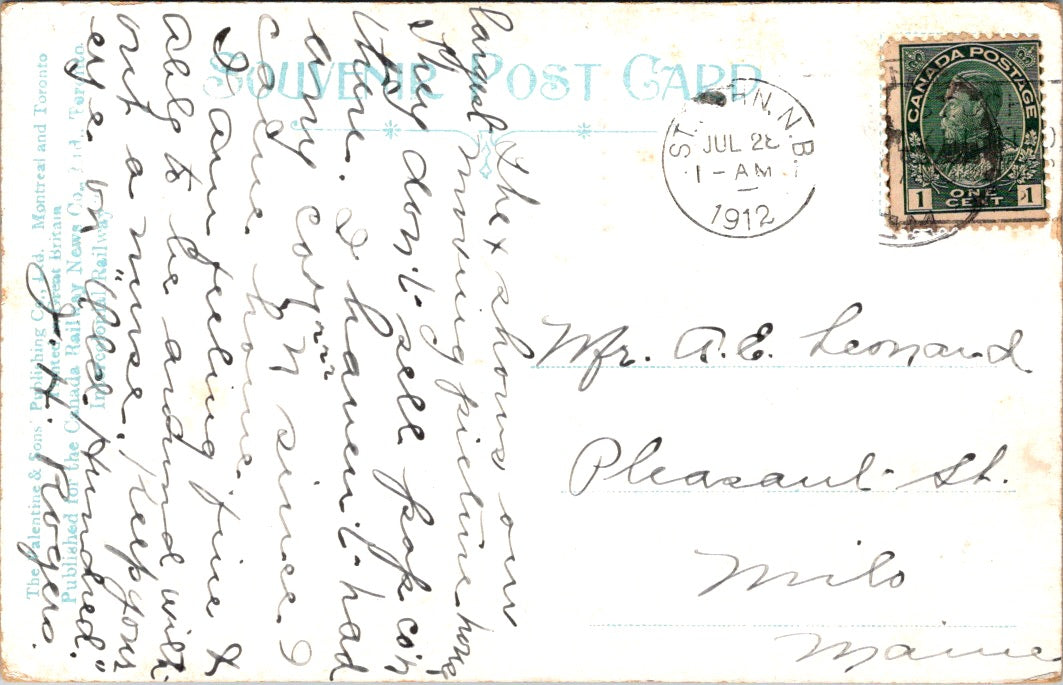 SOUVENIR POST CARD
CANADA POSTAGE
ONE
CENT
1 1
ST. HN, N.B.
JUL 28
1 - AM
1912
The x shows our
largest moving picture house
They don't sell pop co'n
there. I haven't had
any cor'n since I
came home.
I am feeling fine &
able to be around with-
out a nurse. Keep your
eye on "Old Hundred."
J. H. Rogers.
Mr. A. E. Leonard
Pleasant St.
Milo
Maine
The Valentine & Sons' Publishing Co., Ltd. Montreal and Toronto
Printed in Great Britain
Published for the Canada Railway News Co., Ltd., Toronto.
Intercolonial Railway